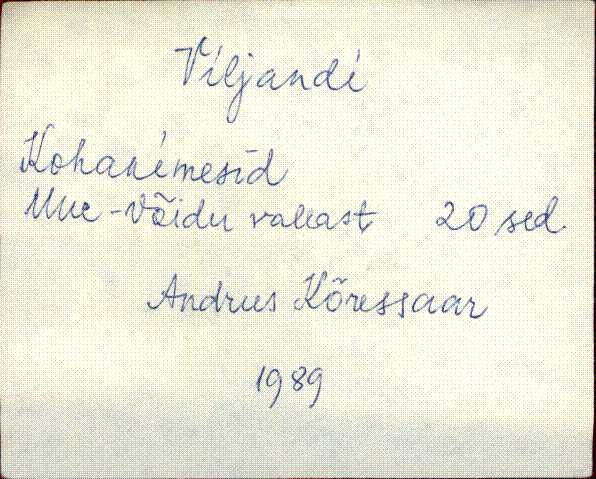 Viljandi
Kohanimesid
Uue-Võidu vallast 20 sed.
Andrus Kõressaar
1989